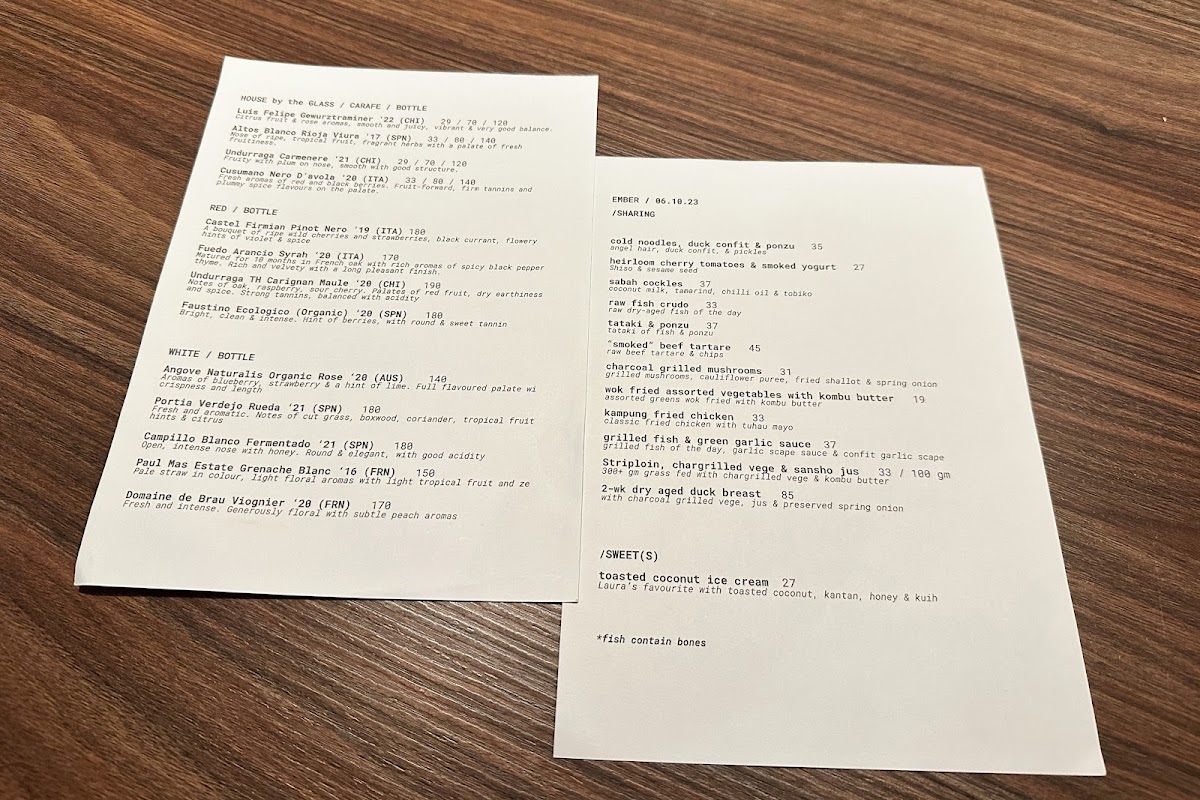 HOUSE by the GLASS / CARAFE / BOTTLE
Luis Felipe Gewurztraminer '22 (CHI) 29 / 70 / 120
Citrus fruit & rose aromas, smooth and juicy, vibrant & very good balance.
Altos Blanco Rioja Viura '17 (SPN) 33 / 80 / 140
Nose of ripe, tropical fruit, fragrant herbs with a palate of fresh
fruitiness.
Undurraga Carmenere '21 (CHI) 29 / 70 / 120
Fruity with plum on nose, smooth with good structure.
Cusumano Nero D'avola '20 (ITA) 33 / 80 / 140
Fresh aromas of red and black berries. Fruit-forward, firm tannins and
plummy spice flavours on the palate.
RED / BOTTLE
Castel Firmian Pinot Nero '19 (ITA) 180
A bouquet of ripe wild cherries and strawberries, black currant, flowery
hints of violet & spice
Fuedo Arancio Syrah '20 (ITA) 170
Matured for 10 months in French oak with rich aromas of spicy black pepper
thyme. Rich and velvety with a long pleasant finish.
Undurraga TH Carignan Maule '20 (CHI) 190
Notes of oak, raspberry, sour cherry. Palates of red fruit, dry earthiness
and spice. Strong tannins, balanced with acidity
Faustino Ecologico (Organic) '20 (SPN) 180
Bright, clean & intense. Hint of berries, with round & sweet tannin
WHITE / BOTTLE
Angove Naturalis Organic Rose '20 (AUS) 140
Aromas of blueberry, strawberry & a hint of lime. Full flavoured palate wi
crispness and length
Portia Verdejo Rueda '21 (SPN) 180
Fresh and aromatic. Notes of cut grass, boxwood, coriander, tropical fruit
hints & citrus
Campillo Blanco Fermentado '21 (SPN) 180
Open, intense nose with honey. Round & elegant, with good acidity
Paul Mas Estate Grenache Blanc '16 (FRN) 150
Pale straw in colour, light floral aromas with light tropical fruit and ze
Domaine de Brau Viognier '20 (FRN) 170
Fresh and intense. Generously floral with subtle peach aromas
EMBER / 06.10.23
/SHARING
cold noodles, duck confit & ponzu 35
angel hair, duck confit, & pickles
heirloom cherry tomatoes & smoked yogurt 27
Shiso & sesame seed
sabah cockles 37
coconut milk, tamarind, chilli oil & tobiko
raw fish crudo 33
raw dry-aged fish of the day
tataki & ponzu 37
tataki of fish & ponzu
"smoked" beef tartare 45
raw beef tartare & chips
charcoal grilled mushrooms 31
grilled mushrooms, cauliflower puree, fried shallot & spring onion
wok fried assorted vegetables with kombu butter 19
assorted greens wok fried with kombu butter
kampung fried chicken 33
classic fried chicken with tuhau mayo
grilled fish & green garlic sauce 37
grilled fish of the day, garlic scape sauce & confit garlic scape
Striploin, chargrilled vege & sansho jus 33 / 100 gm
300+ gm grass fed with chargrilled vege & kombu butter
2-wk dry aged duck breast 85
with charcoal grilled vege, jus & preserved spring onion
/SWEET(S)
toasted coconut ice cream 27
Laura's favourite with toasted coconut, kantan, honey & kuih
*fish contain bones